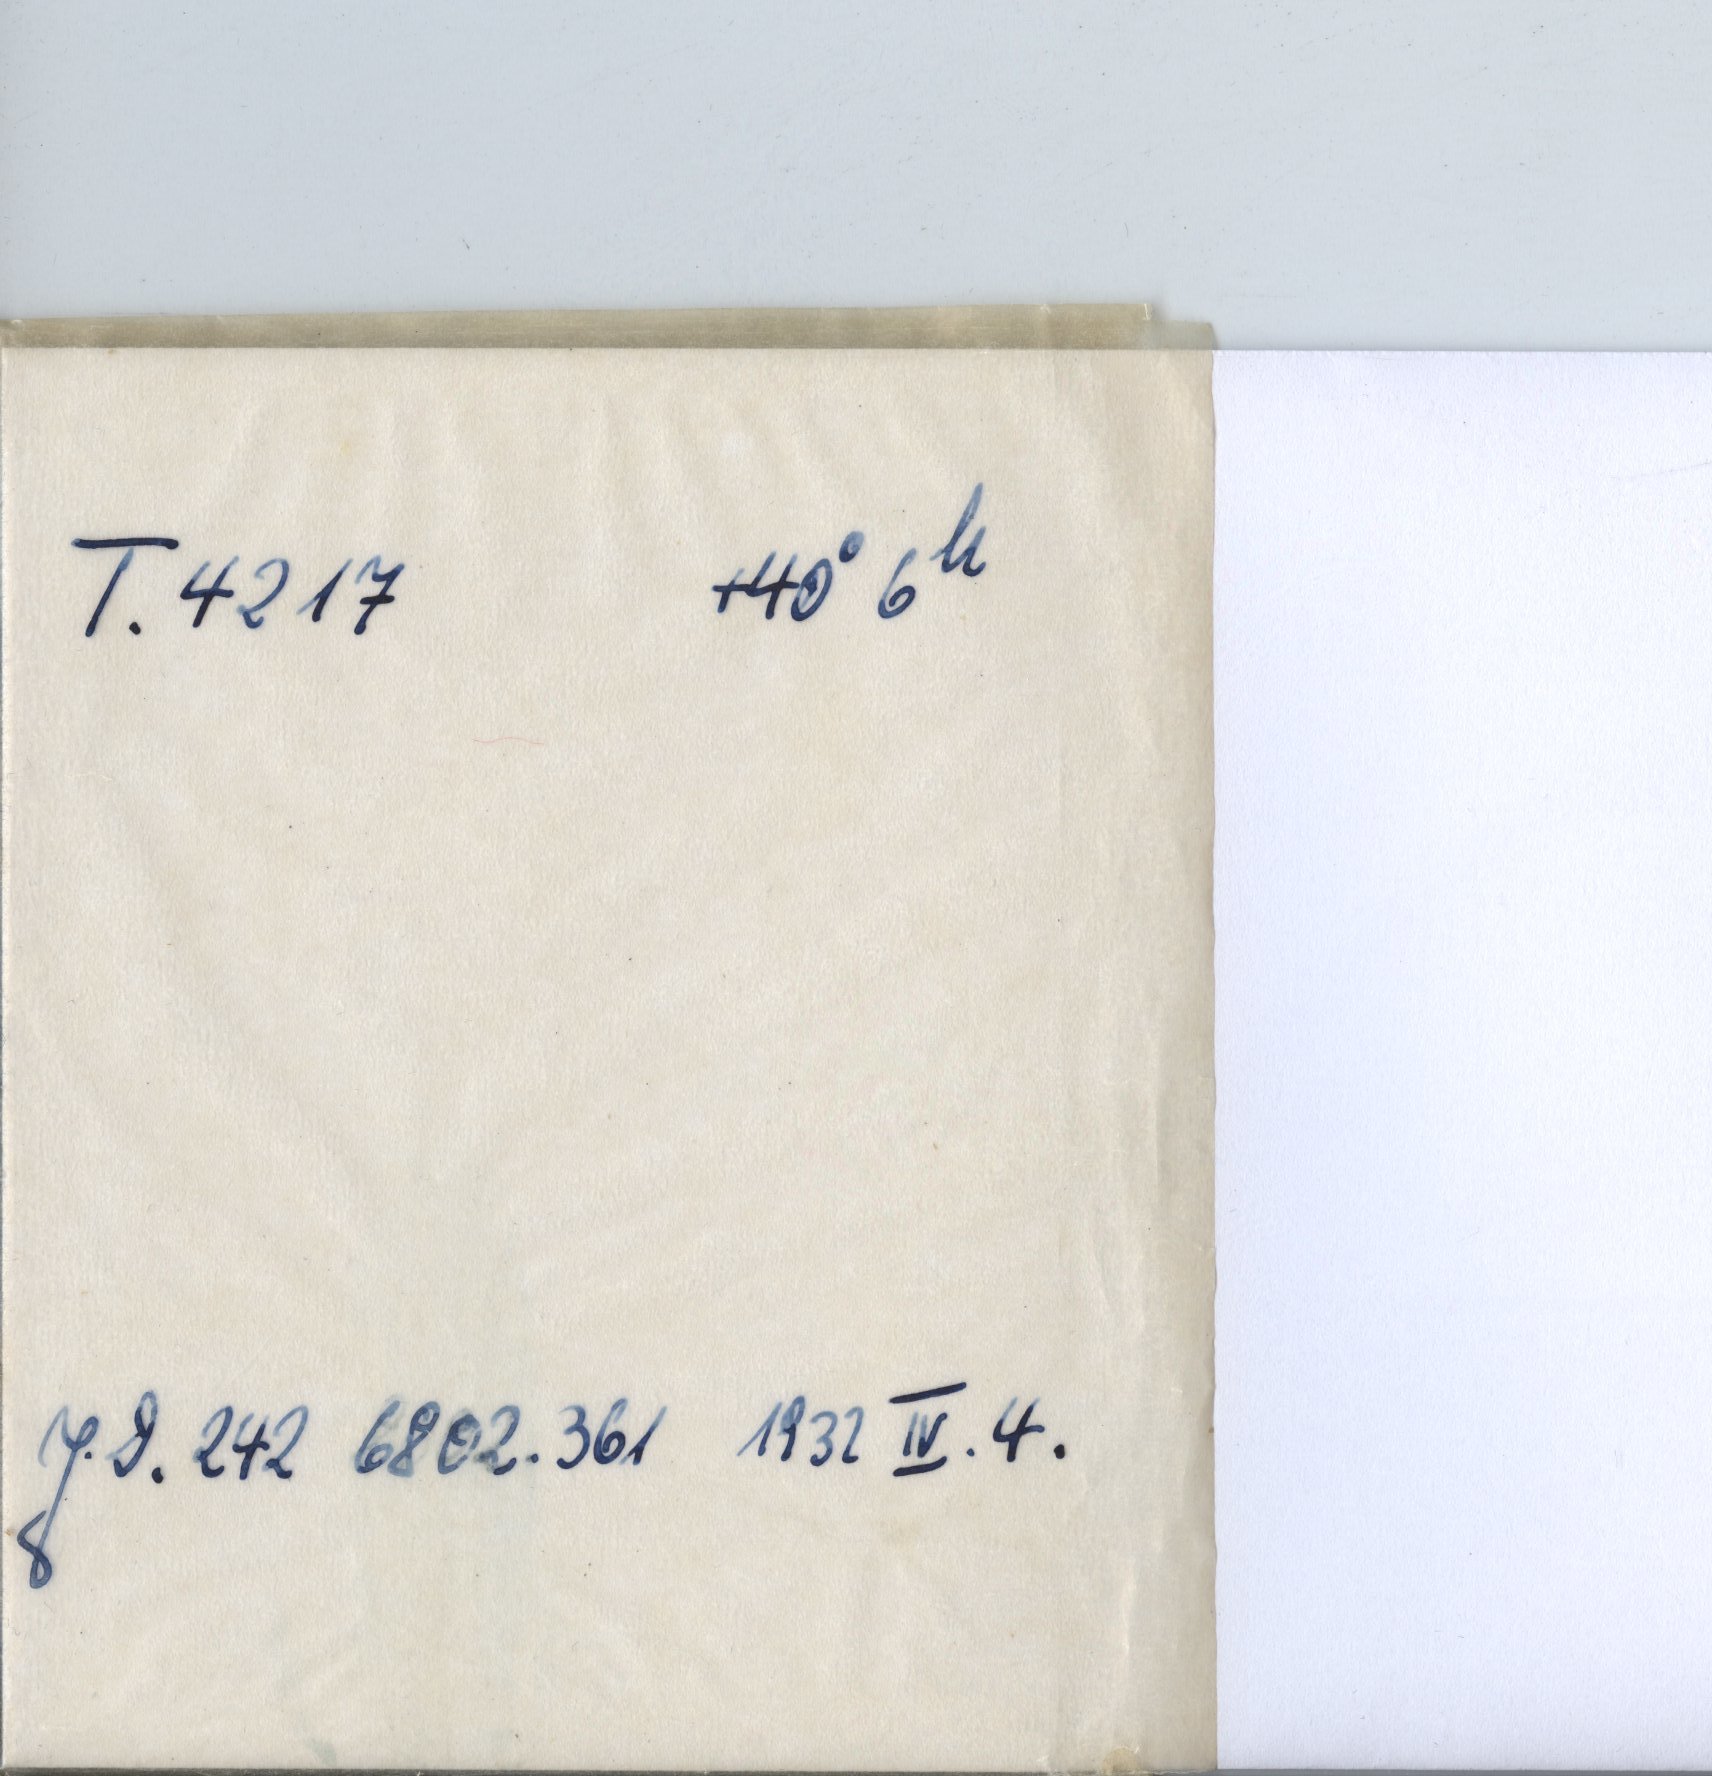 T. 4217 +40° 6h
J.D. 242 6802.361 1932 IV. 4.